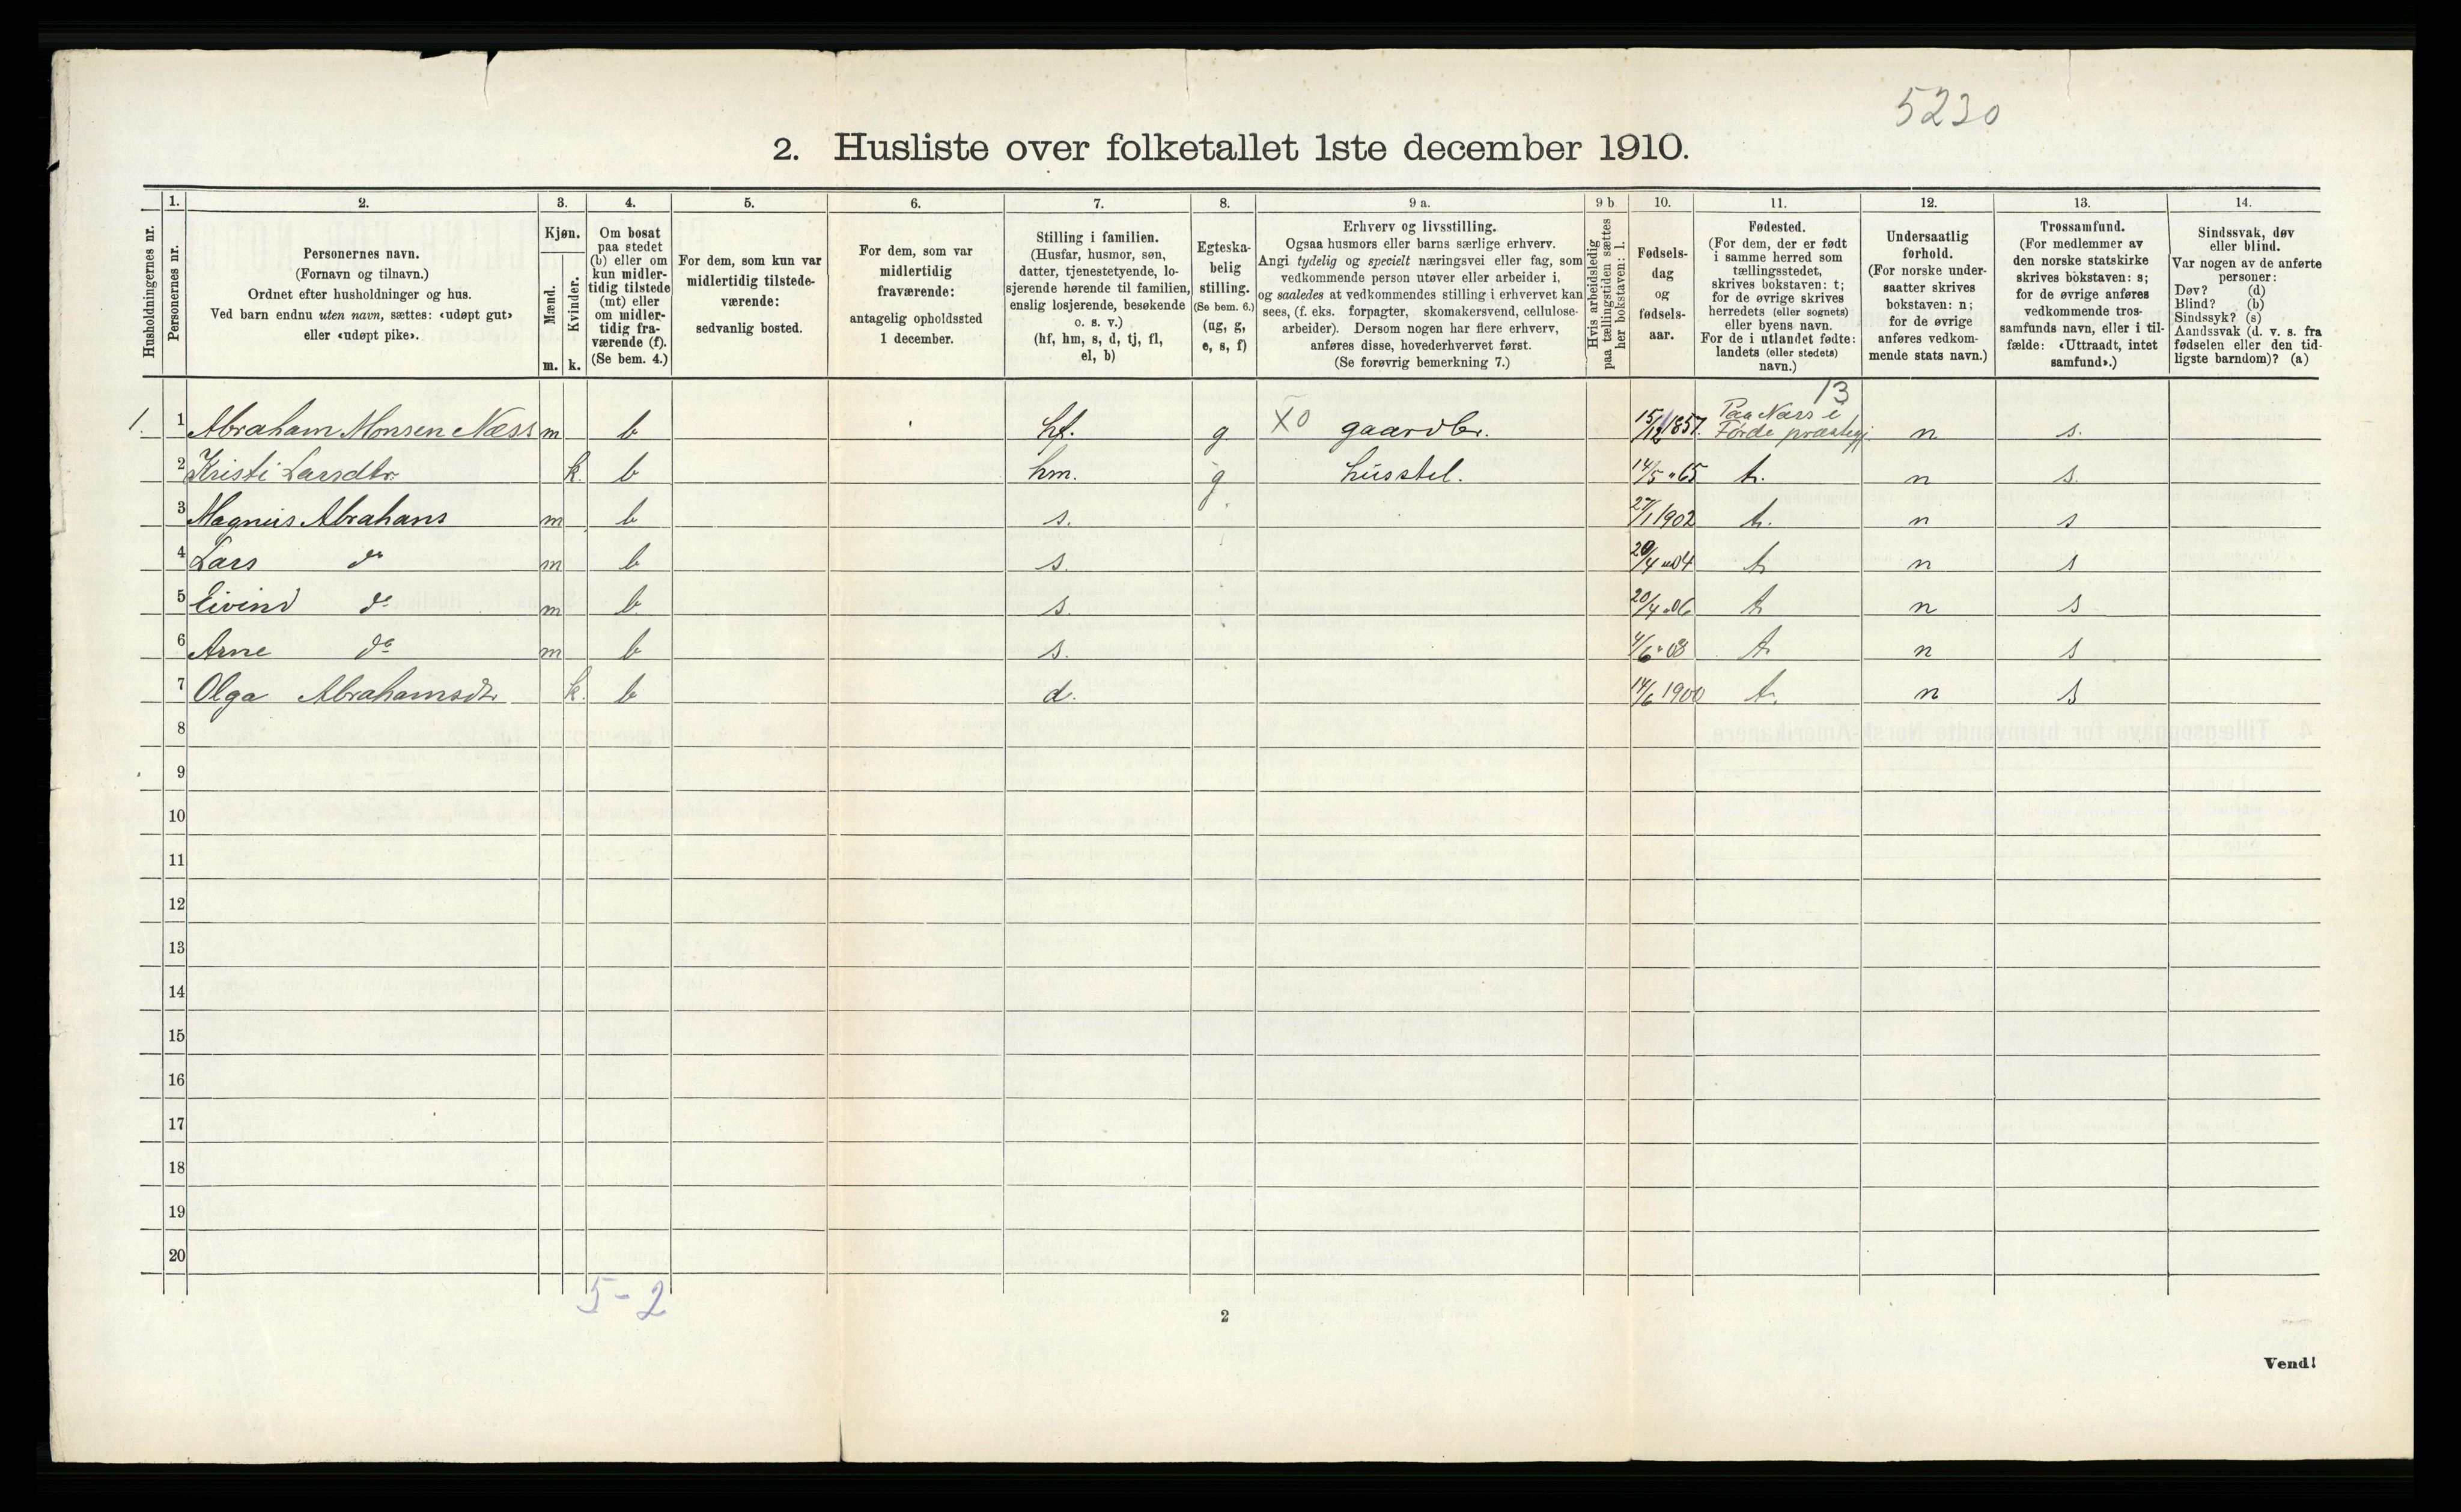 5230
2. Husliste over folketallet 1ste december 1910.
Husholdningernes nr.
1.
Personernes nr.
2.
Personernes navn.
(Fornavn og tilnavn.)
Ordnet efter husholdninger og hus.
Ved barn endnu uten navn, sættes: «udøpt gut»
eller «udøpt pike».
3.
Kjøn.
Mænd.
Kvinder.
m. k.
4.
Om bosat
paa stedet
(b) eller om
kun midler-
tidig tilstede
(mt) eller
om midler-
tidig fra-
værende (f).
(Se bem. 4.)
5.
For dem, som kun var
midlertidig tilstede-
værende:
sedvanlig bosted.
6.
For dem, som var
midlertidig
fraværende:
antagelig opholdssted
1 december.
7.
Stilling i familien.
(Husfar, husmor, søn,
datter, tjenestetyende, lo-
sjerende hørende til familien,
enslig losjerende, besøkende
o. s. v.)
(hf, hm, s, d, tj, fl,
el, b)
8.
Egteska-
belig
stilling.
(Se bem. 6.)
(ug, g,
e, s, f)
9 a.
Erhverv og livsstilling.
Ogsaa husmors eller barns særlige erhverv.
Angi tydelig og specielt næringsvei eller fag, som
vedkommende person utøver eller arbeider i,
og saaledes at vedkommendes stilling i erhvervet kan
sees, (f. eks. forpagter, skomakersvend, cellulose-
arbeider). Dersom nogen har flere erhverv,
anføres disse, hovederhvervet først.
(Se forøvrig bemerkning 7.)
9 b
Hvis arbeidsledig
paa tællingstiden sættes
her bokstaven: l.
10.
Fødsels-
dag
og
fødsels-
aar.
11.
Fødested.
(For dem, der er født
i samme herred som
tællingsstedet,
skrives bokstaven: t;
for de øvrige skrives
herredets (eller sognets)
eller byens navn.
For de i utlandet fødte:
landets (eller stedets)
navn.)
12.
Undersaatlig
forhold.
(For norske under-
saatter skrives
bokstaven: n;
for de øvrige
anføres vedkom-
mende stats navn.)
13.
Trossamfund.
(For medlemmer av
den norske statskirke
skrives bokstaven: s;
for de øvrige anføres
vedkommende tros-
samfunds navn, eller i til-
fælde: «Uttraadt, intet
samfund».)
14.
Sindssvak, døv
eller blind.
Var nogen av de anførte
personer:
Døv? (d)
Blind? (b)
Sindssyk? (s)
Aandssvak (d. v. s. fra
fødselen eller den tid-
ligste barndom)? (a)
13
1. 1 Abraham Monsen Næss m b hf. g X0 gaardbr. 15/12 1857. Paa Næss i Førde præstegj. n s.
2 Kristi Larsdtr. k. b hm. g husstel. 14/5 " 65 t. n s.
3 Magnus Abrahams m b s. 27/1 1902 t. n s
4 Lars do m b s. 20/4 " 04 t n s
5 Eivind do m b s. 20/4 " 06 t n s
6 Arne do m b s. 4/6 " 08 t n s
7 Olga Abrahamsdtr k. b d. 14/6 1900 t. n s
8
9
10
11
12
13
14
15
16
17
18
19
20
5-2
2
Vend!